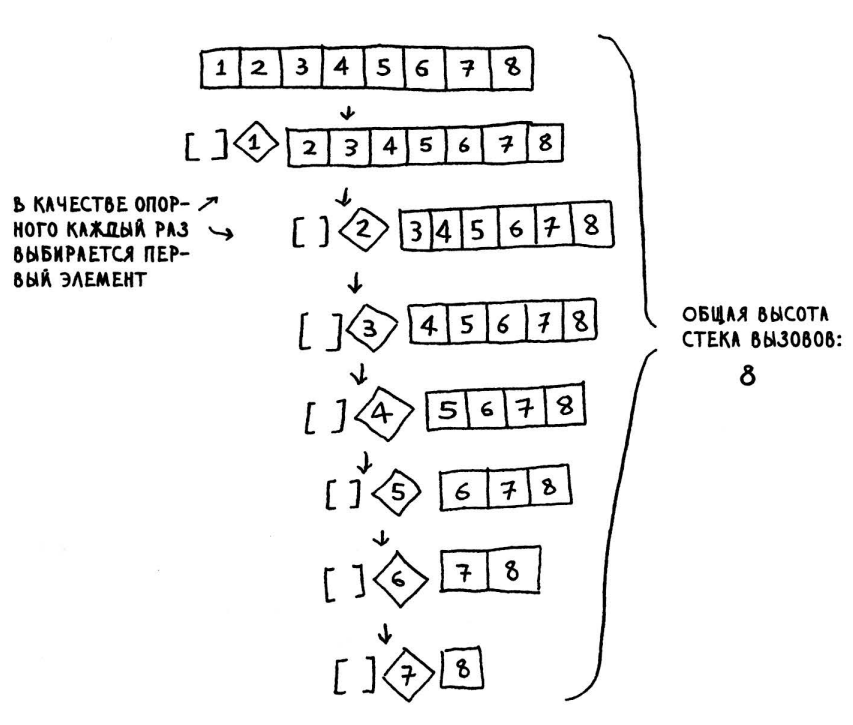 1 2 3 4 5 6 7 8
[ ] 1 2 3 4 5 6 7 8
[ ] 2 3 4 5 6 7 8
В КАЧЕСТВЕ ОПОР-
НОГО КАЖДЫЙ РАЗ
ВЫБИРАЕТСЯ ПЕР-
ВЫЙ ЭЛЕМЕНТ
[ ] 3 4 5 6 7 8
[ ] 4 5 6 7 8
[ ] 5 6 7 8
[ ] 6 7 8
[ ] 7 8
ОБЩАЯ ВЫСОТА
СТЕКА ВЫЗОВОВ:
8